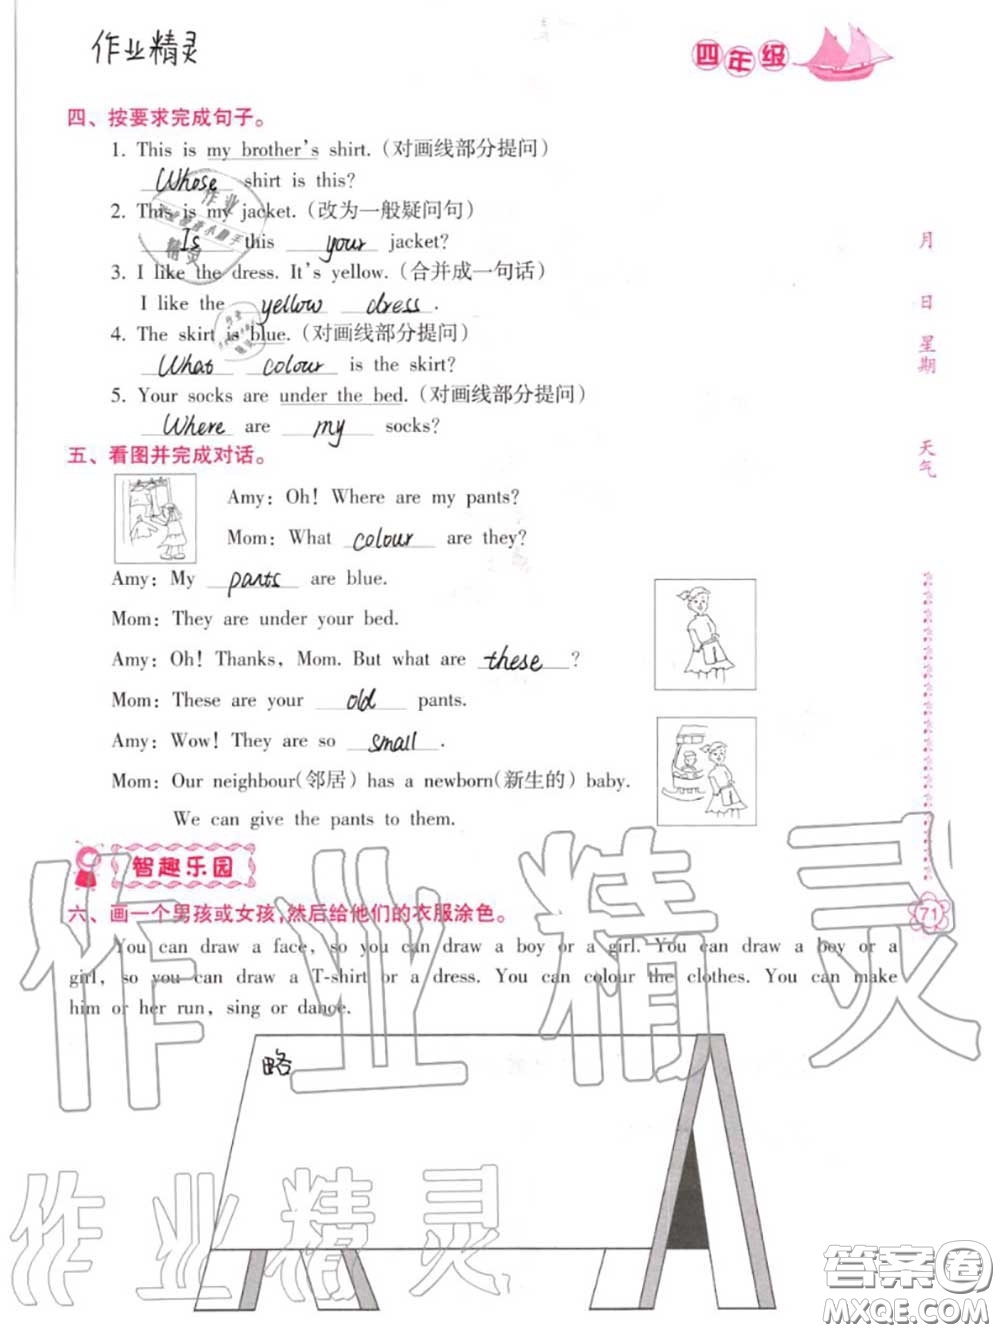 作业精灵
四年级
四、按要求完成句子。
1. This is my brother's shirt.(对画线部分提问)
Whose shirt is this?
2. This is my jacket.(改为一般疑问句)
Is this your jacket?
3. I like the dress. It's yellow.(合并成一句话)
I like the yellow dress.
4. The skirt is blue.(对画线部分提问)
What colour is the skirt?
5. Your socks are under the bed.(对画线部分提问)
Where are my socks?
五、看图并完成对话。
Amy: Oh! Where are my pants?
Mom: What colour are they?
Amy: My pants are blue.
Mom: They are under your bed.
Amy: Oh! Thanks, Mom. But what are these?
Mom: These are your old pants.
Amy: Wow! They are so small.
Mom: Our neighbour(邻居) has a newborn(新生的) baby.
We can give the pants to them.
智趣乐园
六、画一个男孩或女孩,然后给他们的衣服涂色。
You can draw a face, so you can draw a boy or a girl. You can draw a boy or a
girl, so you can draw a T-shirt or a dress. You can colour the clothes. You can make
him or her run, sing or dance.
略
月
日
星期
天气
71
作业精灵
作业精灵
答案卷
MXQE.COM